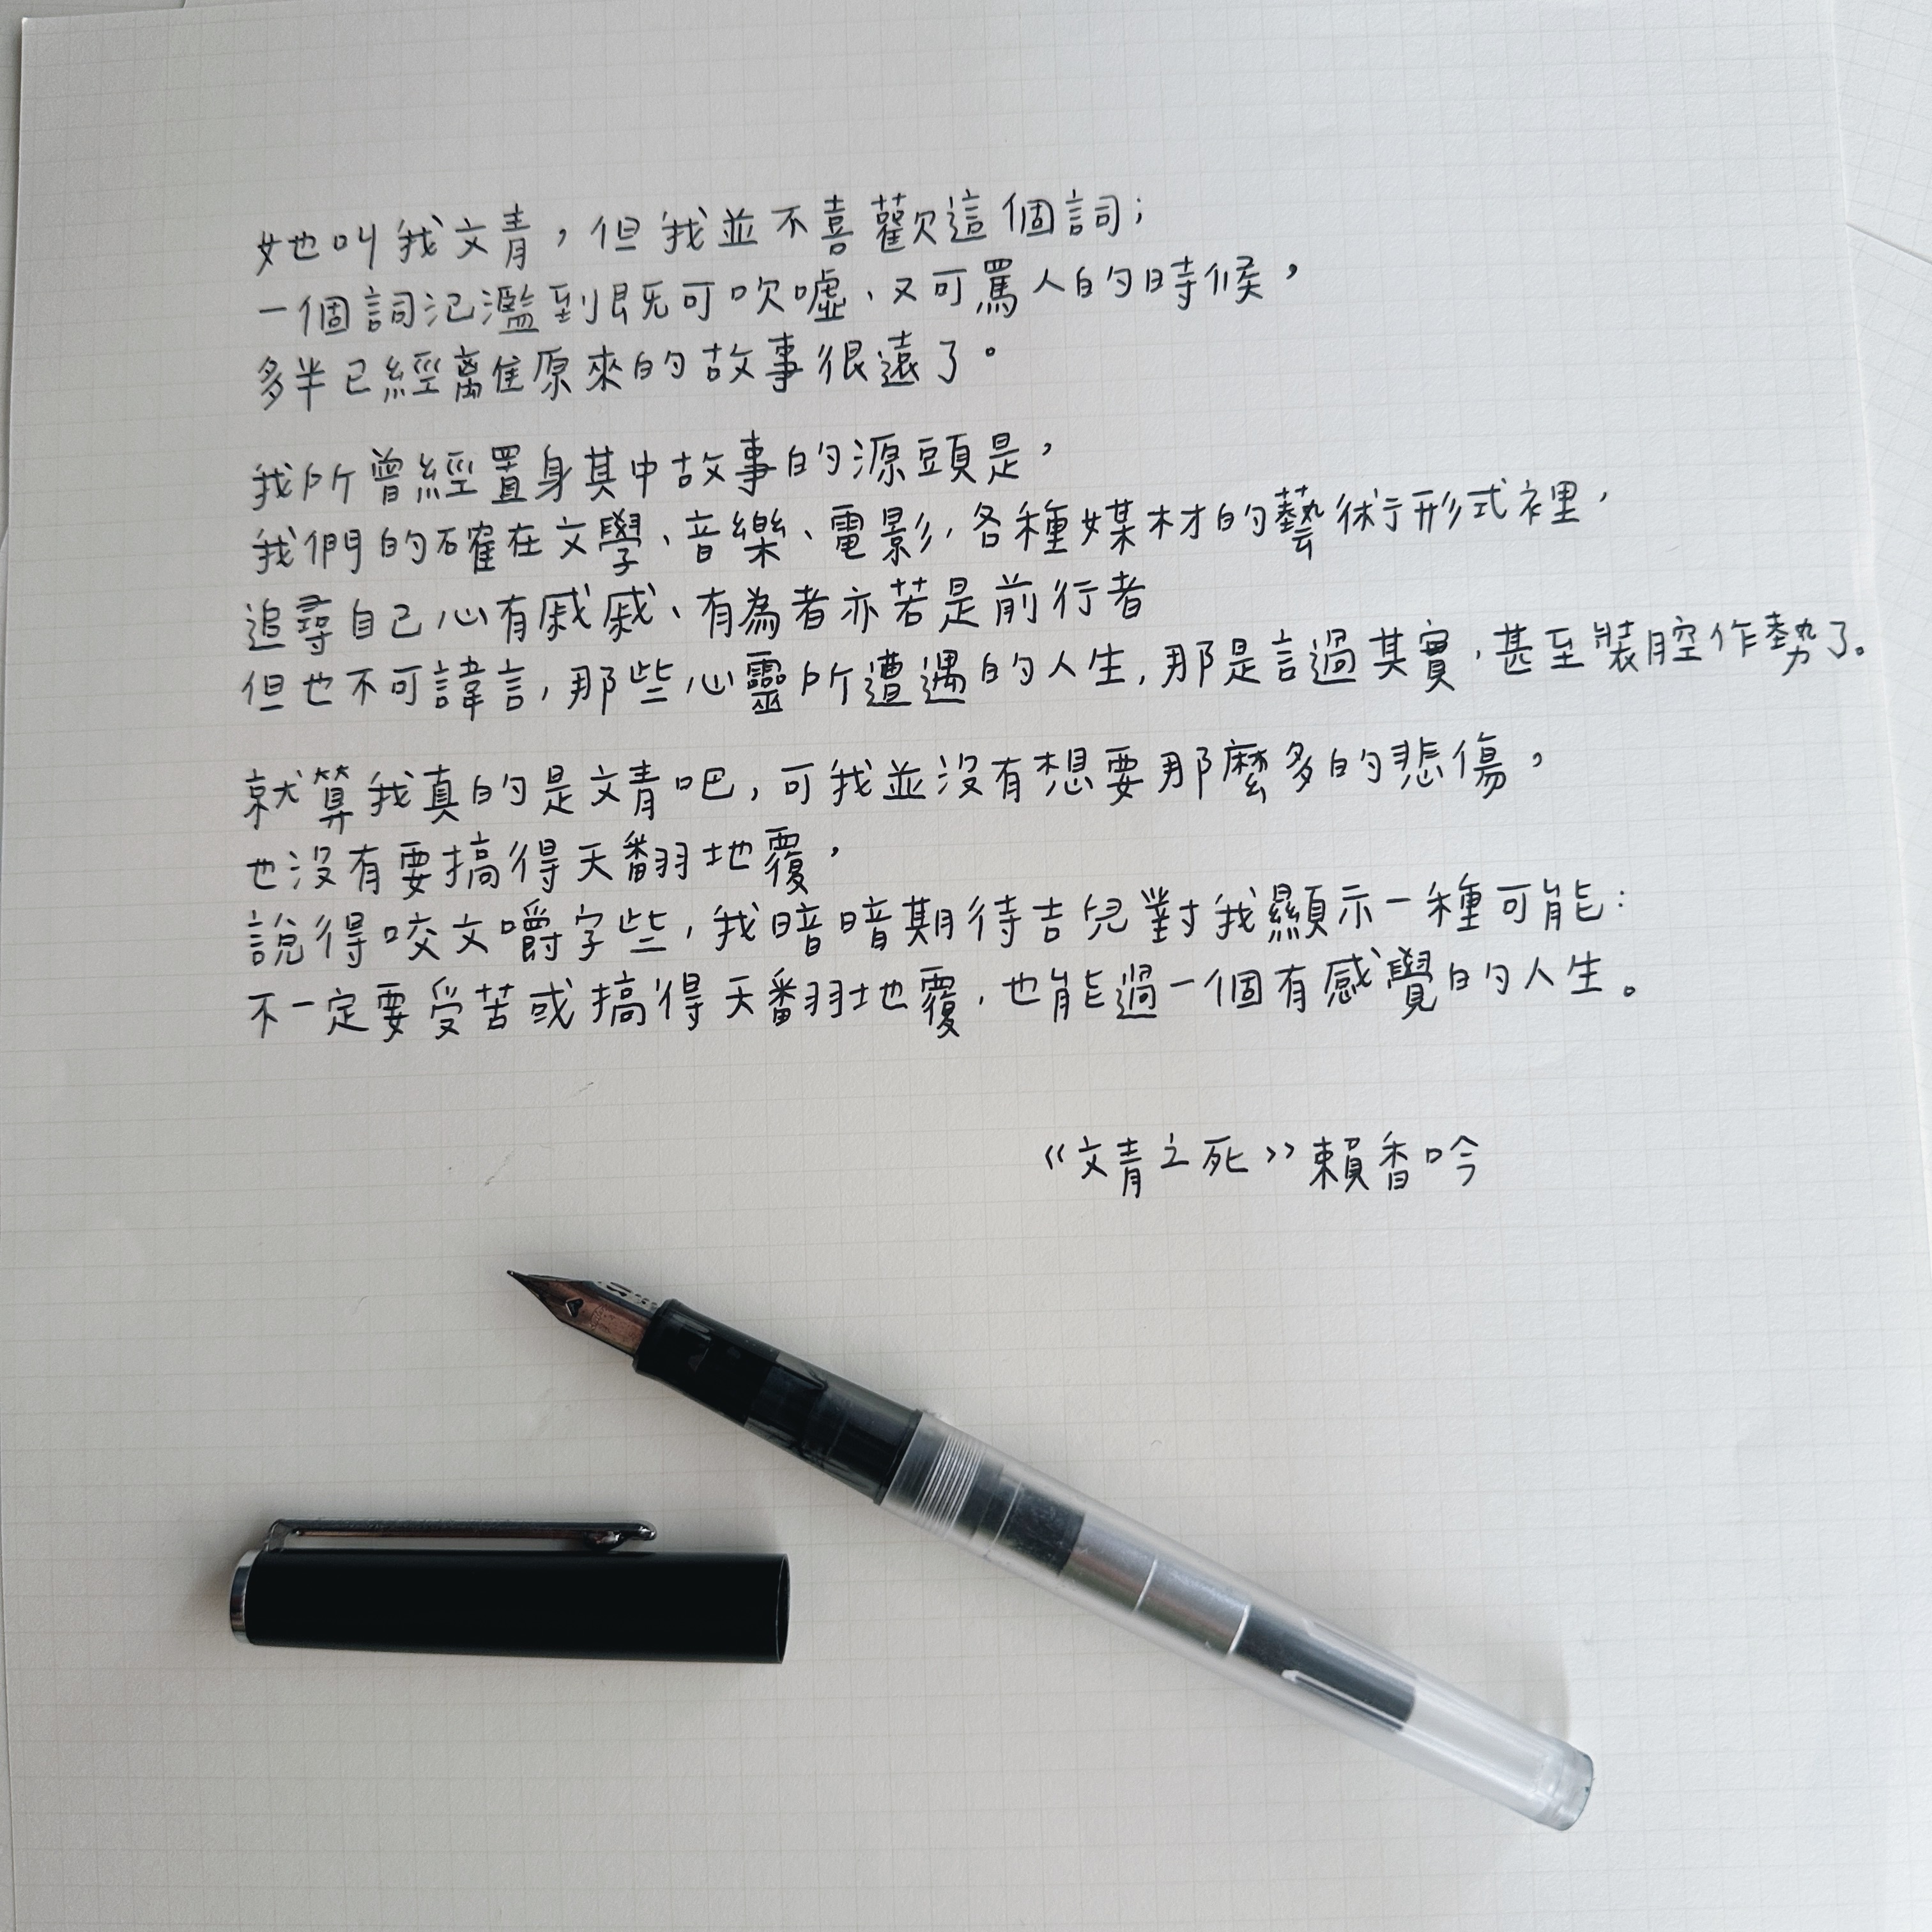 她叫我文青，但我並不喜歡這個詞；
一個詞氾濫到既可吹噓、又可罵人的時候，
多半已經離開原來的故事很遠了。
我所曾經置身其中故事的源頭是，
我們的確在文學、音樂、電影，各種媒材的藝術形式裡，
追尋自己心有戚戚、有為者亦若是前行者
但也不可諱言，那些心靈所遭遇的人生，那是言過其實，甚至裝腔作勢了。
就算我真的是文青吧，可我並沒有想要那麼多的悲傷，
也沒有要搞得天翻地覆，
說得咬文嚼字些，我暗暗期待吉兒對我顯示一種可能：
不一定要受苦或搞得天翻地覆，也能過一個有感覺的人生。
《文青之死》賴香吟